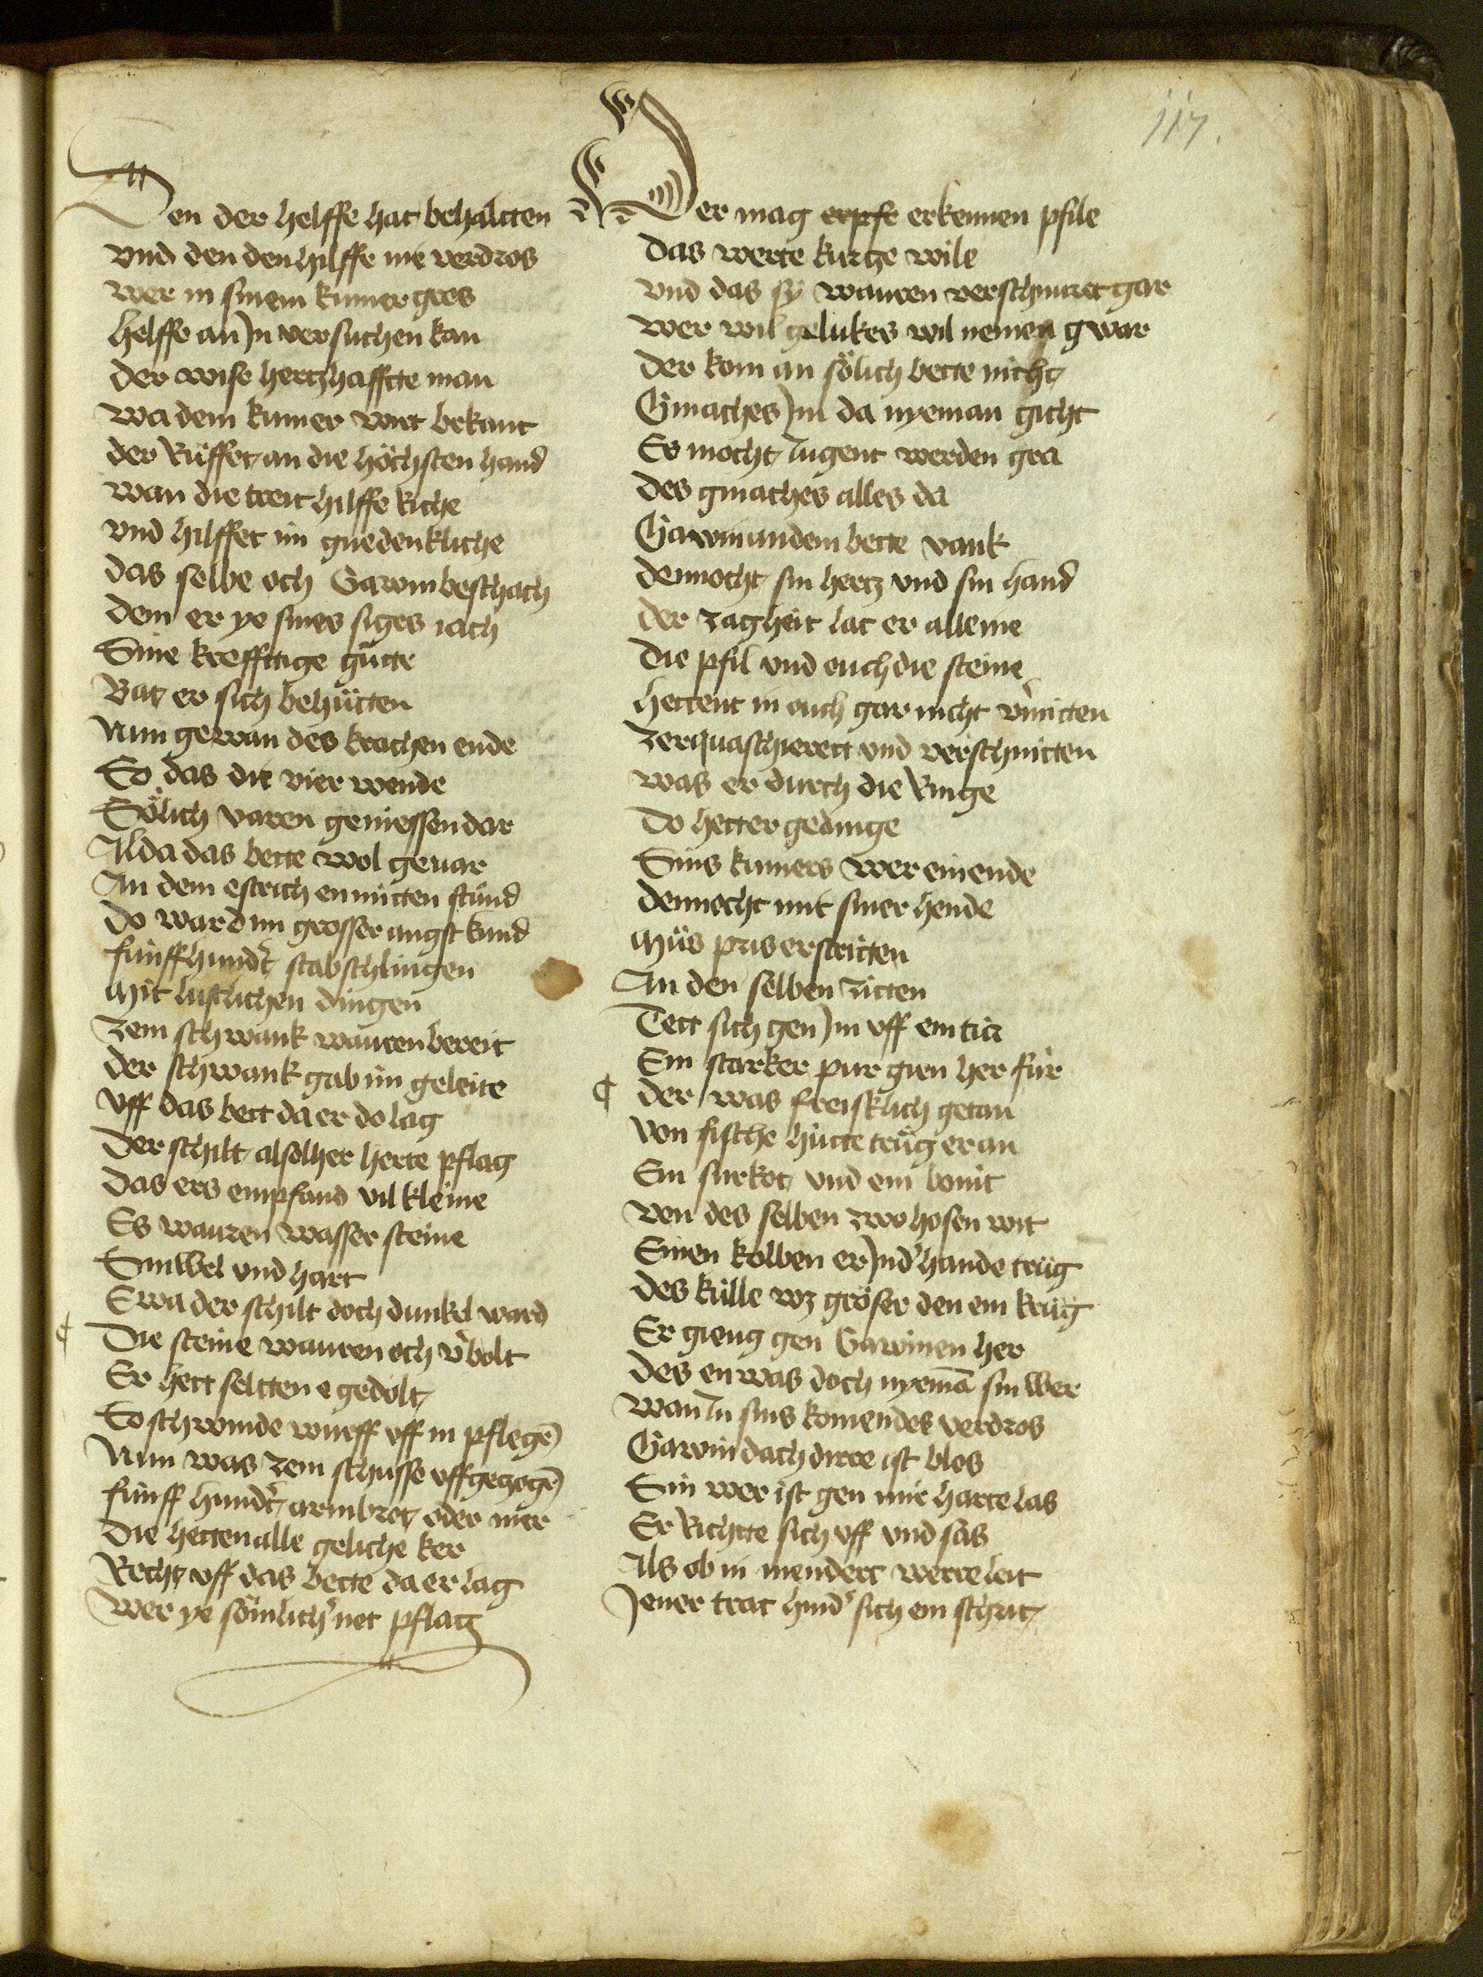 117.
Den der helffe hat behaltten
vnd den den hilffe nie verdros
wer in sinem kumer gros
helffe an Jn versuchen kan
der wise hertzhafftte man
wa dem kumer wirt bekant
der Rüffet an die höchsten hand
wan die treit hilffe Riche
vnd hilffet im gnedenkliche
das selbe och Gawin beschach
dem er ye sines siges iach
Sine krefftige gütte
Bat er sich behütten
Nun gewan des krachen ende
So das die vier wende
Sölich varen geniessen dar
Alda das bette wol gevar
An dem estrich enmitten stünd
do ward im grosser angst kund
fünffhundert stabschlingen
mit listlichen dingen
zem schwank wauren bereit
der schwank gab im geleite
vff das bett da er do lag
der schilt also lher herte pflag
das ers empfand vil kleine
Es wauren wasser steine
Sinwel vnd hart
Ewa der schilt doch dunkel ward
¶ Die steine wauren och v̾bolt
Er hett seltten e gedolt
So schwinde wurff vff in pflegē
Nun was zem schusse vffgezogē
fünff hundert armbrot oder mer
die hetten alle geliche ker
Recht vff das bette da er lag
wer ye sömlich̾ net pflag
Wer mag erpfe erkennen pfile
das werte kurtze wile
vnd das sÿ wauren verschnuret gar
wer wil gelukes wil nemen gwar
der kom an sölich bette nicht
Gmaches Jm da nyeman gicht
Es mocht Jugent werden gra
des gmaches alles da
Gawin an dem bette vank
dennocht sin hertz vnd sin hand
der zagheit lat er alleine
die pfil vnd ouch die steine
hettent in ouch gar nicht v̾mitten
zerquaschierett vnd verschnitten
was er durch die Ringe
do hetter gedinge
Sins kumers wer ein ende
dennocht mit siner hende
müs pris erstritten
An den selben zitten
Tett sich gen Jm vff ein tür
Ein starker pur gien her für
¶ der was freisklich getan
von fische hütte trüg er an
Ein surkot vnd ein bonit
von des selben zwo hosen wit
Einen kolben er Jnd̾ hande trüg
des külle wz gröser den ein krüg
Er gieng gen Gawinen her
des en was doch nyemā sin wer
wan Jn sins komendes verdros
Gawin dach dirre ist blos
Sin wer ist gen mir harte las
Er Richtte sich vff vnd sas
Als ob in niendert werre leit
Jener trat hind̾ sich ein schrit